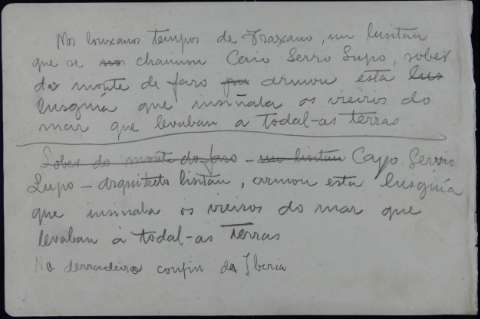 Nos louxanos tempos de Traxano, un lusitan
que se chamou Caio Serro Lupo, sobes
do monte de faro armou esta
lusquía que insiñala os vieiros do
mar que levaban a todal-as terras
Sobes do monte do faro - un lusitan Cayo Servio
Lupo - arquitecto lusitan, armou esta lusquía
que insinala os vieiros do mar que
levaban à todal-as terras
No derradeiro confin da Iberia